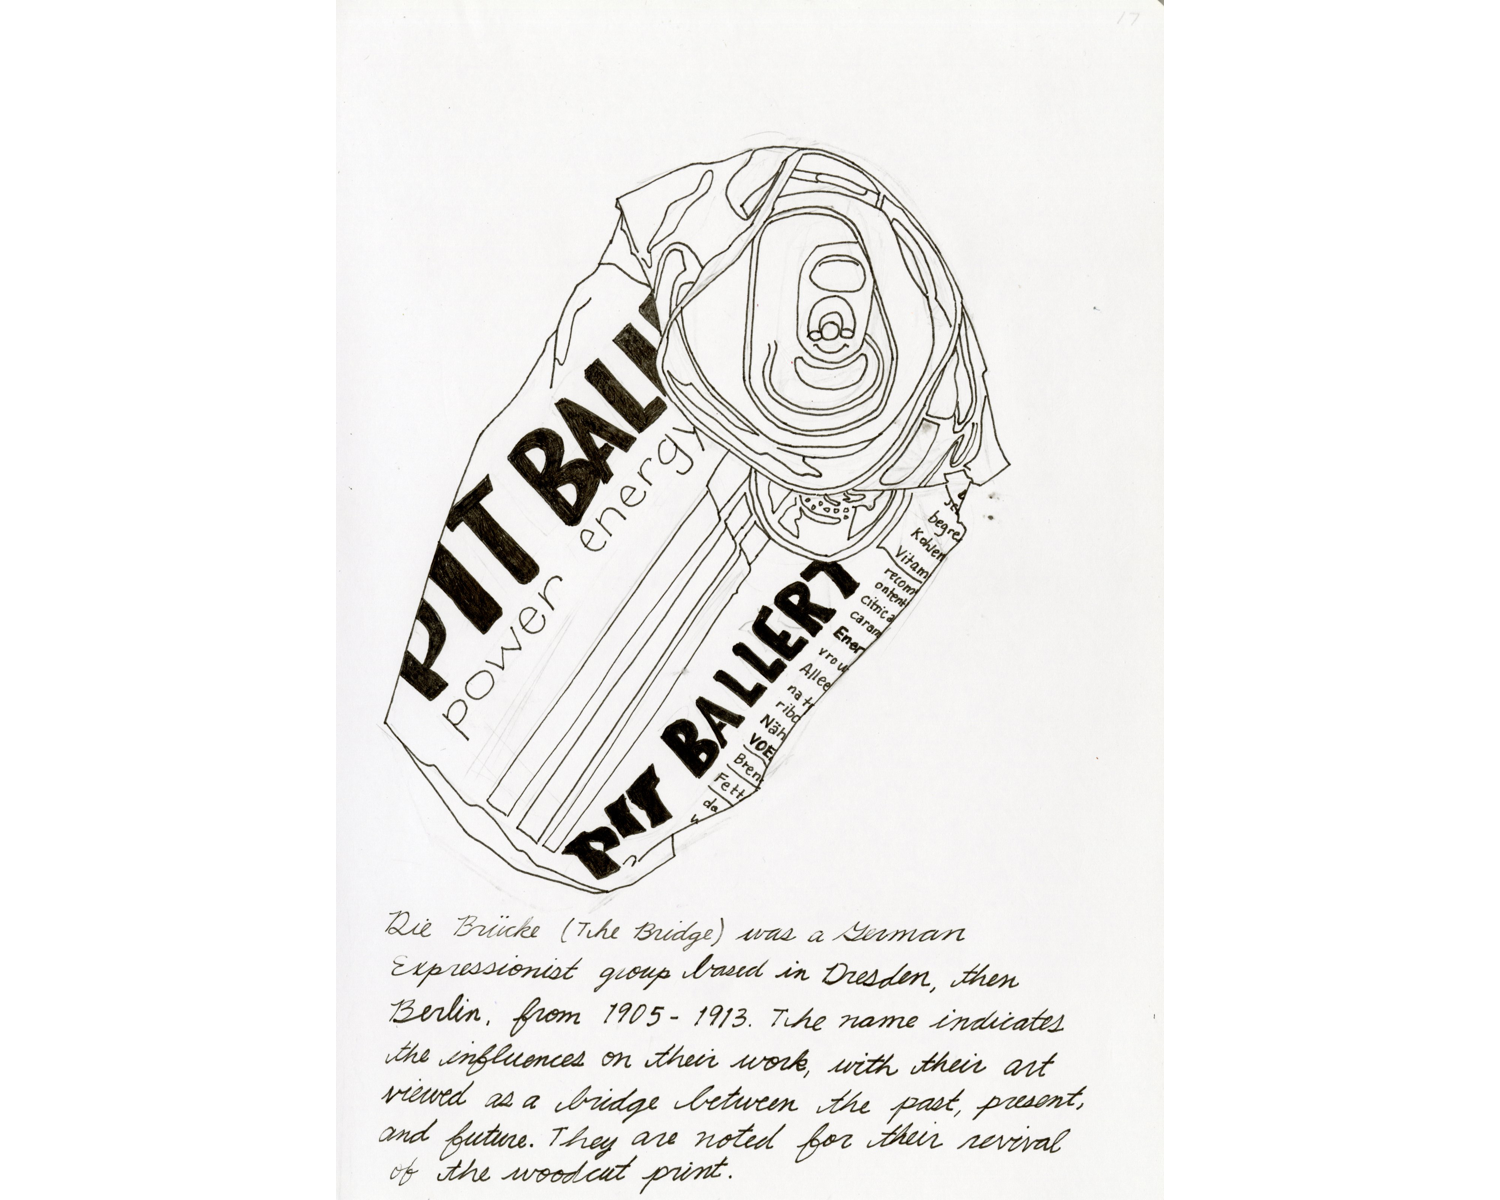 17
PIT BALL
power energy
PIT BALLERT
begre
Kohlen
Vitam
recom
ontent
citric a
caram
Ener
vrou
Allee
natt
ribo
Näh
VOE
Bren
Fett
da
Die Brücke (The Bridge) was a German
Expressionist group based in Dresden, then
Berlin, from 1905-1913. The name indicates
the influences on their work, with their art
viewed as a bridge between the past, present,
and future. They are noted for their revival
of the woodcut print.